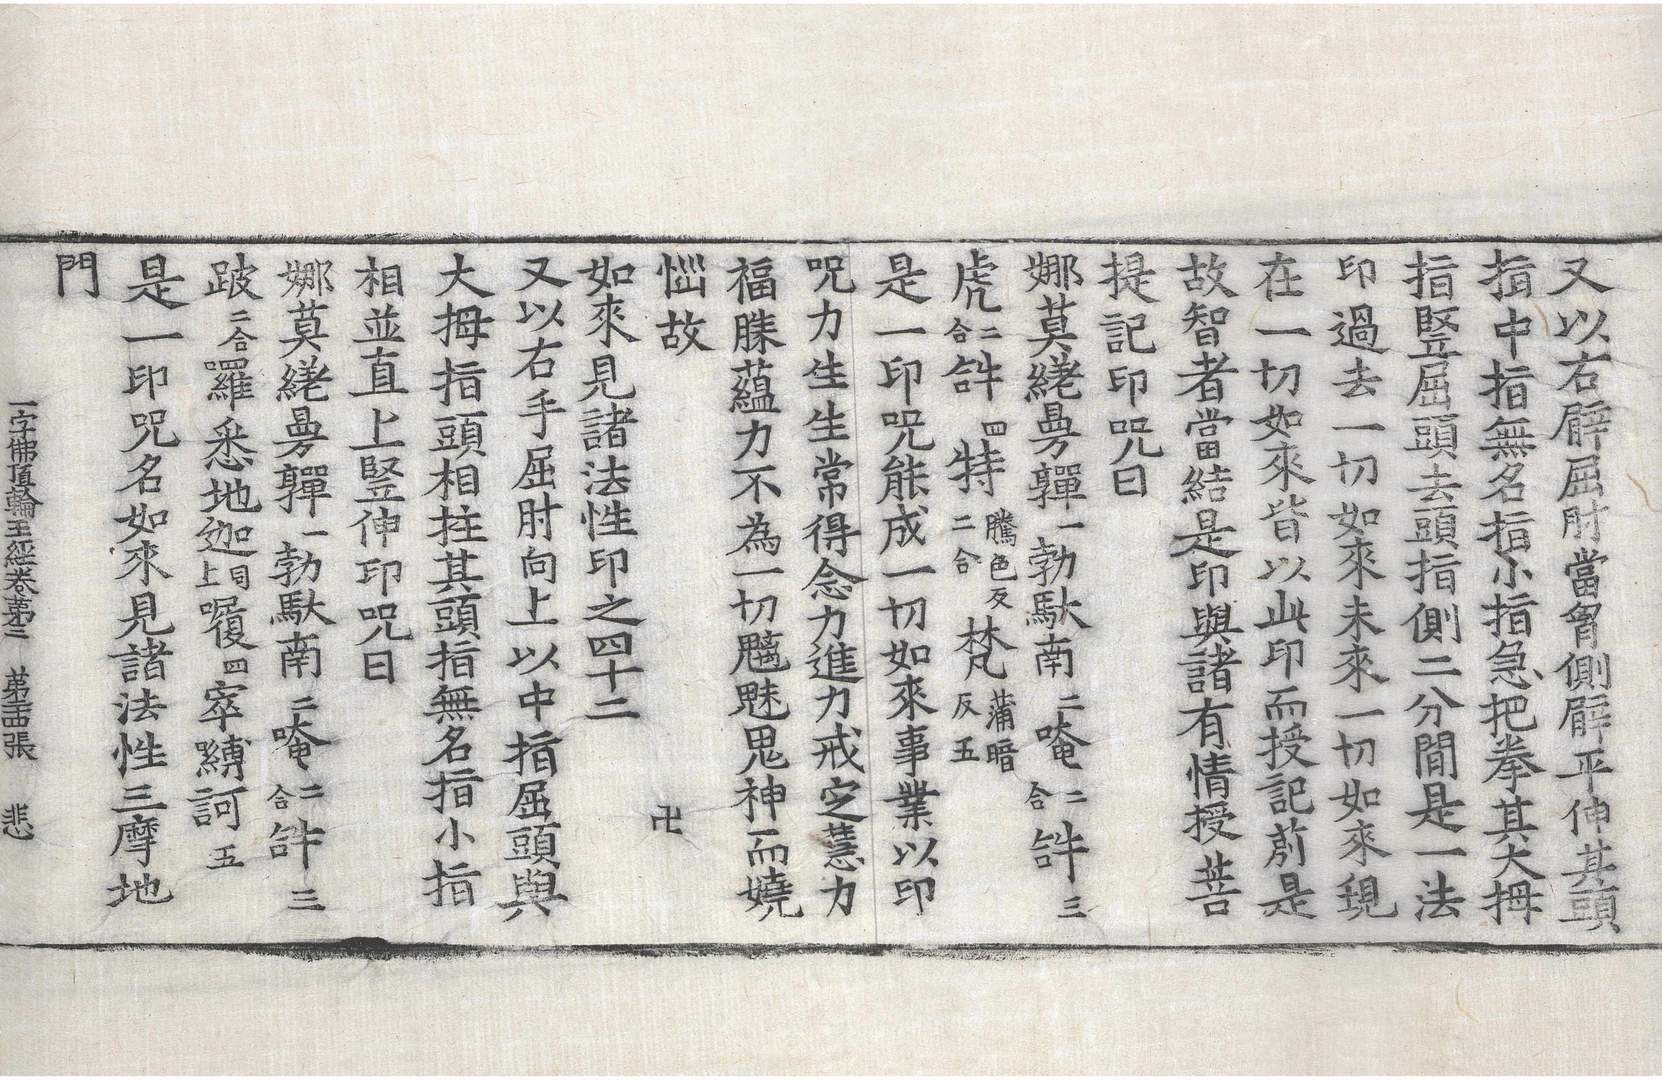 又以右臂屈肘當胷側臂平伸其頭
指中指無名指小指急把拳其大拇
指竪屈頭去頭指側二分間是一法
印過去一切如來未來一切如來現
在一切如來皆以此印而授記莂是
故智者當結是印與諸有情授菩
提記印咒曰
娜莫繞曼嚲一勃馱南二唵二合𤙖三
虎二合𤙖四特騰邑反二合梵蒲暗反五
是一印咒能成一切如來事業以印
咒力生生常得念力進力戒定慧力
福勝蘊力不為一切魑魅鬼神而嬈
惱故
卍
如來見諸法性印之四十二
又以右手屈肘向上以中指屈頭與
大拇指頭相拄其頭指無名指小指
相並直上竪伸印咒曰
娜莫繞曼嚲一勃馱南二唵二合𤙖三
跛二合囉悉地迦同上囑四窣縛訶五
是一印咒名如來見諸法性三摩地
門
一字佛頂輪王經卷苐三 苐十五張 悲